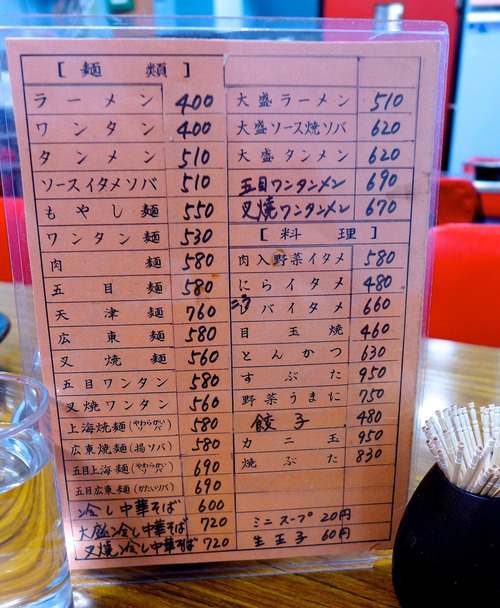 [ 麺 類 ]
ラーメン 400
ワンタン 400
タンメン 510
ソースイタメソバ 510
もやし麺 550
ワンタン麺 530
肉麺 580
五目麺 580
天津麺 760
広東麺 580
叉焼麺 560
五目ワンタン 580
叉焼ワンタン 560
上海焼麺(やわらかい) 580
広東焼麺(揚ソバ) 580
五目上海麺(やわらかいソバ) 690
五目広東麺(かたいソバ) 690
冷し中華そば 600
大盛冷し中華そば 720
叉焼冷し中華そば 720
大盛ラーメン 510
大盛ソース焼ソバ 620
大盛タンメン 620
五目ワンタンメン 690
叉焼ワンタンメン 670
[ 料 理 ]
肉入野菜イタメ 580
にらイタメ 480
バイタメ 660
目玉焼 460
とんかつ 630
すぶた 950
野菜うまに 750
餃子 480
カニ玉 950
焼ぶた 830
ミニスープ 20円
生玉子 60円